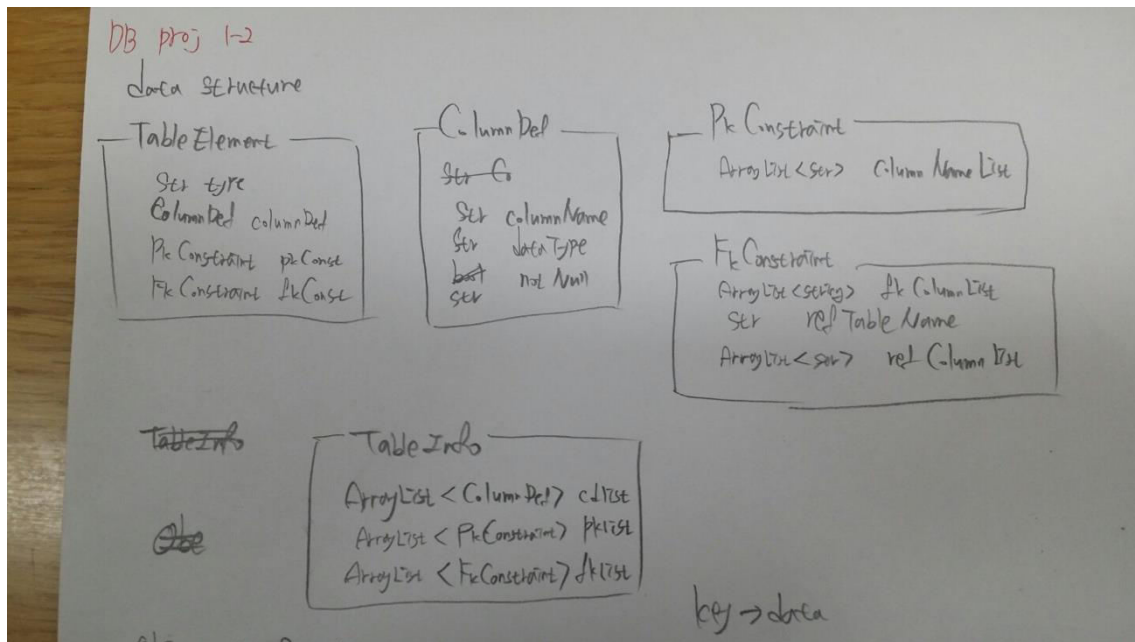 DB proj 1-2
data structure
TableElement
Str type
ColumnDef columnDef
PkConstraint pkConst
FkConstraint fkConst
ColumnDef
Str C
Str columnName
Str dataType
not Null
str
PkConstraint
ArrayList<str> ColumnNameList
FkConstraint
ArrayList<string> fkColumnList
str refTableName
ArrayList<str> refColumnList
TableInfo
TableInfo
ArrayList<ColumnDef> cdlist
ArrayList<PkConstraint> pklist
ArrayList<FkConstraint> fklist
key → data